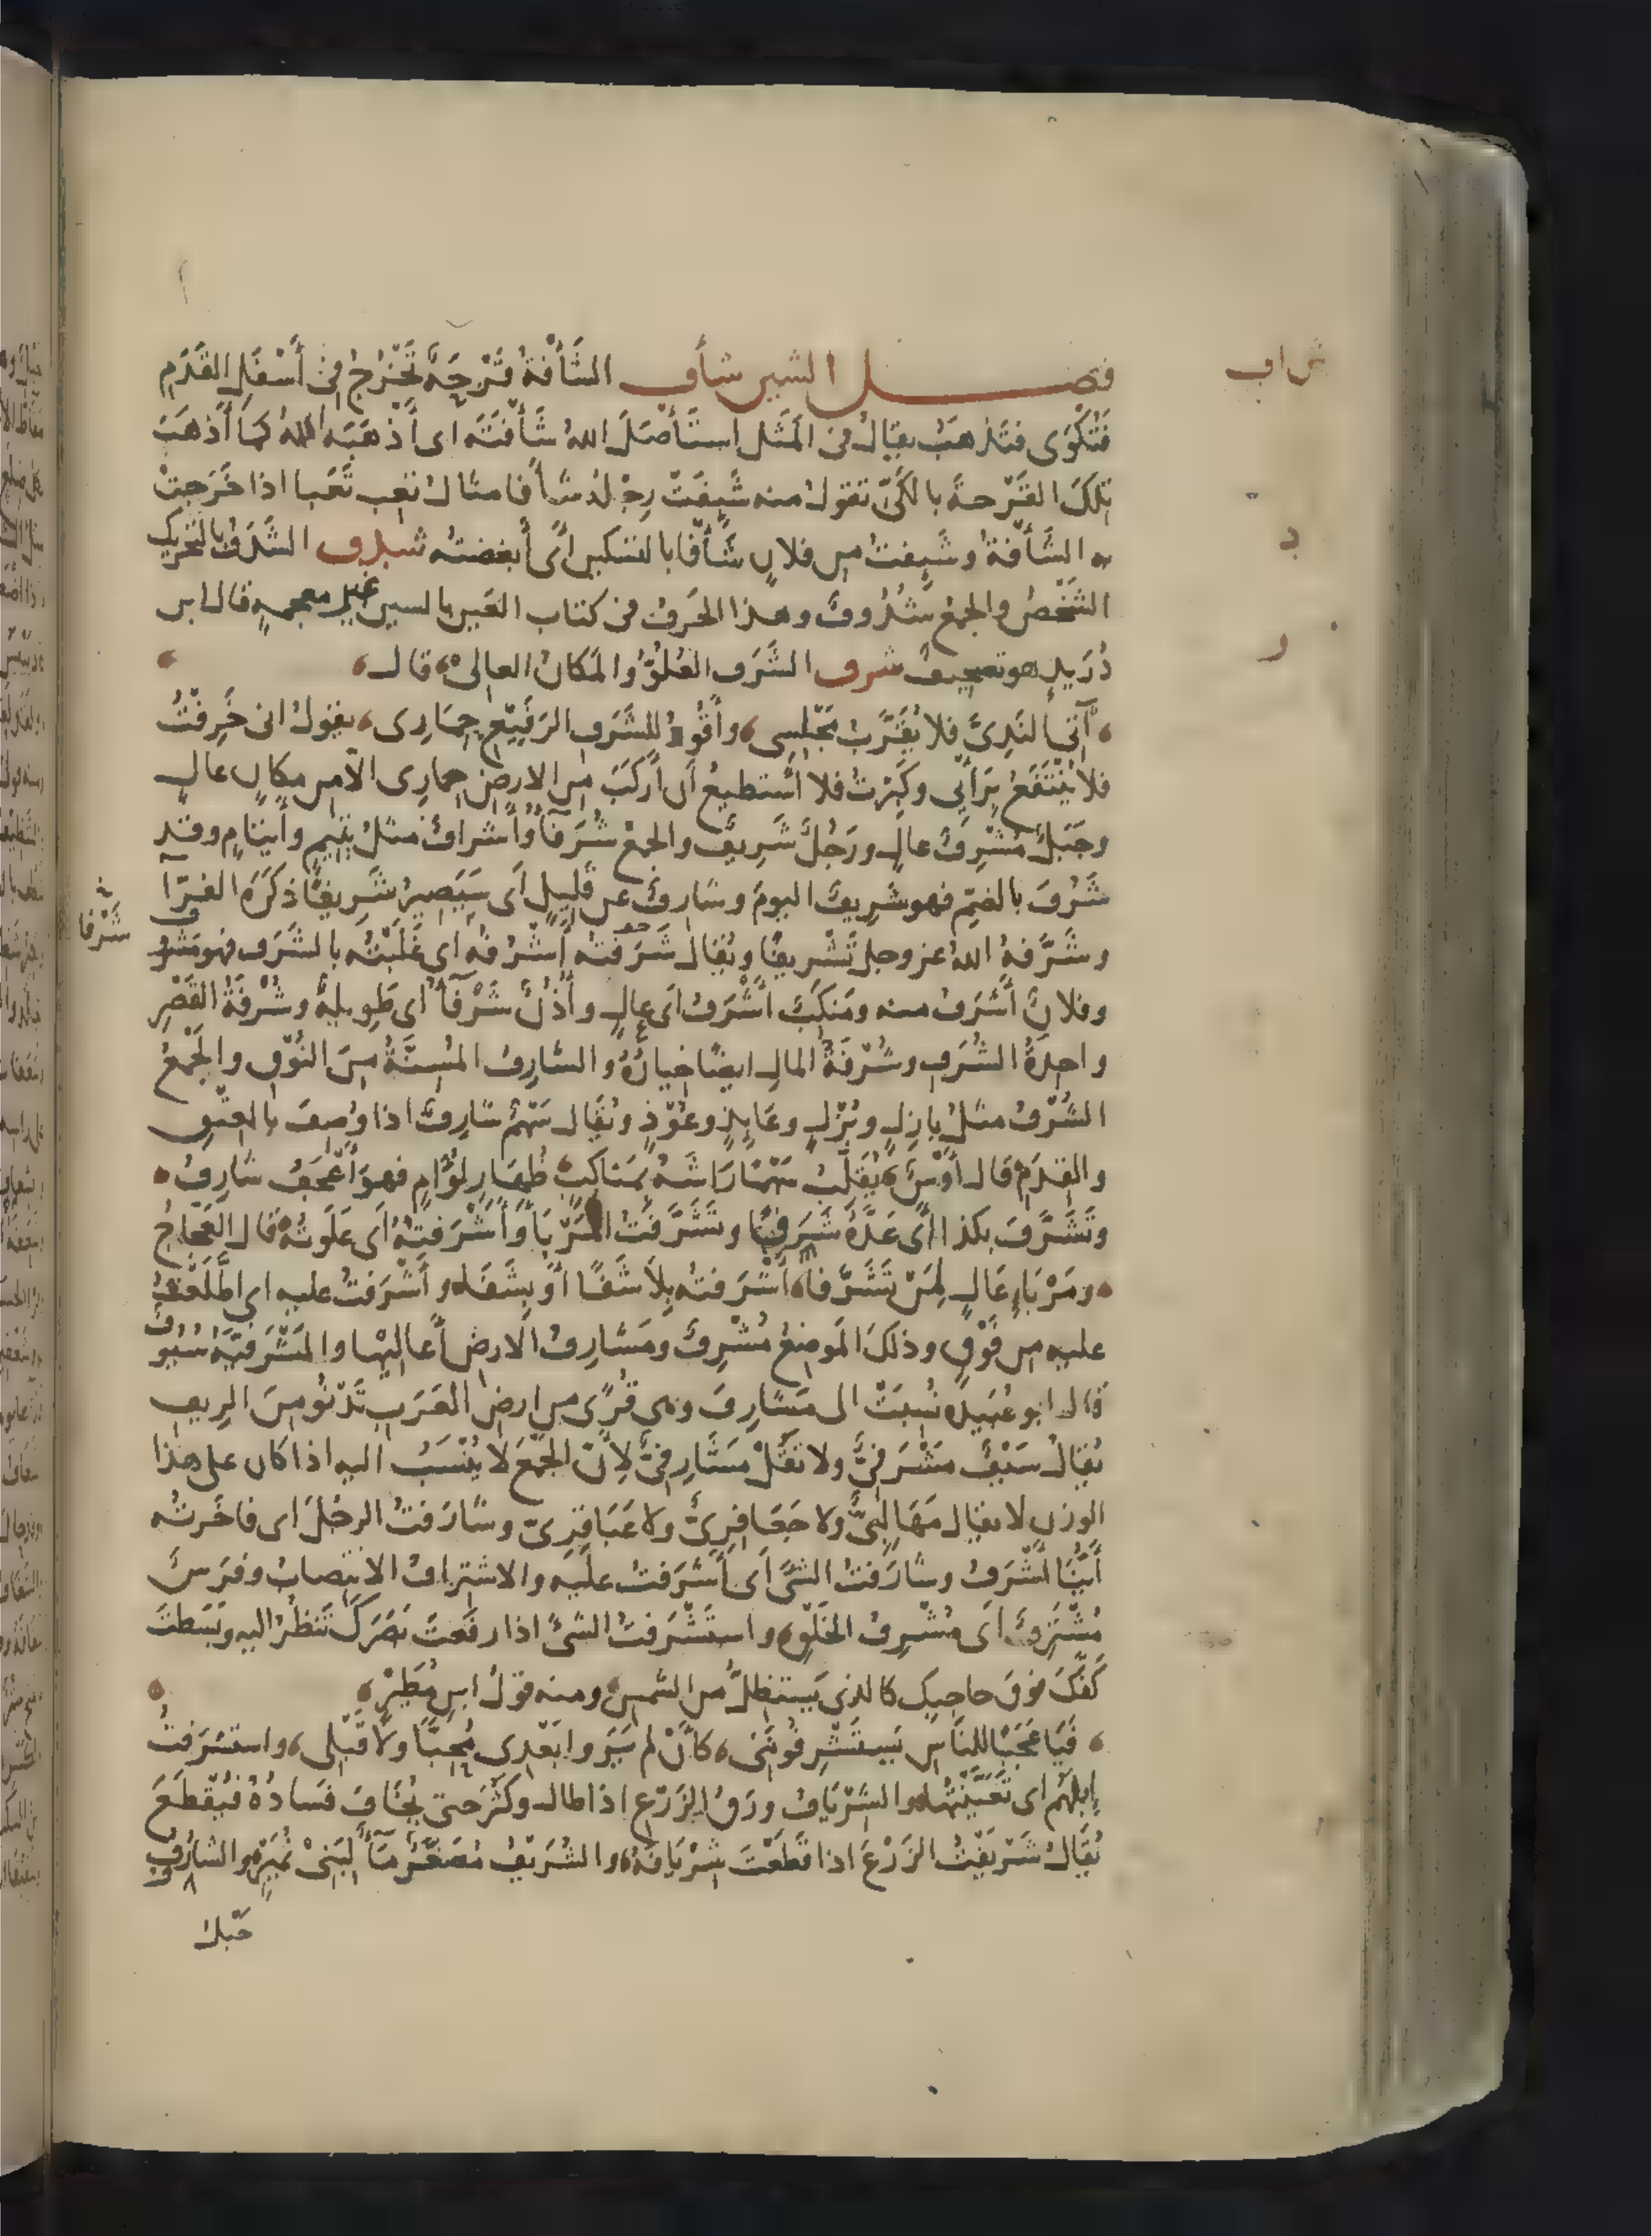 فصل الشين شأف الشَّأْفَةُ قَرْحَةٌ تَخْرُجُ فى أَسْفَلِ القَدَمِ
ش ا ف
فَتُكْوَى فتذهَبُ يقالُ فى المَثَل اِستَأْصَلَ اللهُ شَأْفَتَه اى أَذْهَبَه اللهُ كما أَذهَبَ
تِلكَ القَرْحةَ بالكَىّ تقولُ منه شَئِفَتْ رِجْلُه شأَفا مثال تعِب تَعَبا اذا خَرَجتْ
به الشَّأفةُ وشَئِفتُ من فلانٍ شَأْفًا بالتسكين أى أبغضتُه شدف الشَّدَفُ بالتحريك
د
الشَّخْصُ والجمعُ شُدُوفٌ وهذا الحَرفُ فى كتاب العَين بالسين غير معجمةٍ قال ابن
دُرَيدٍ هو تصحيفٌ شرف الشَّرَف العُلُوُّ والمَكانُ العالى قال
ر
آتى النَدِىَّ فلا يُقَرَّبُ مَجْلِسى وأَقُودُ للشَّرَفِ الرَفيع حِمارِى يقولُ انى خَرِفْتُ
فلا يُنْتَفَعُ بِرَأْيى وكَبِرْتُ فلا أَستطيعُ أن أَركَبَ من الارضِ حِمارِى الا من مكانٍ عالٍ
وجَبَلٌ مُشْرِفٌ عالٍ ورَجُلٌ شَرِيفٌ والجمعُ شُرَفآءُ وأَشرافٌ مثلُ يَتيمٍ وأَيتامٍ وقد
شَرُفَ بالضمّ فهو شَرِيفٌ اليومَ وشارِفٌ عن قَليلٍ أَى سَيَصِيرُ شَرِيفًا ذكَرَه الفرّآ
شَرْفا
وشَرَّفهُ اللهُ عز وجل تَشْريفًا ويُقالُ شَرَفتُه أَشْرُفُه اى غَلَبْتُه بالشَّرَفِ فهو مَشرُوف
وفلانٌ أَشرَفُ منه ومَنكِبٌ أَشْرَفُ اى عالٍ وأُذُنٌ شَرْفآءُ اى طَوِيلةٌ وشُرْفَةُ القَصْرِ
واحِدةُ الشُرَفِ وشُرْفَةُ المالِ ايضًا خِيارُهُ والشارِفُ المُسِنَّةُ مِنَ النُوقِ والجَمْعُ
الشُرْفُ مثلُ بازِلٍ وبُزْلٍ وعايِذٍ وعُوْذٍ ويُقال سَهْمٌ شارِفٌ اذا وُصِفَ بالعِتْقِ
والقِدَم قال أَوْسٌ يُقَلِّبُ سَهْمًا رَاشَهُ بمَناكِبٍ ظُهارٍ لُؤَامٍ فهو أَعْجَفُ شارِفُ
وتَشَرَّفَ بكذا أى عَدَّهُ شَرَفًا وتَشَرَّفْتُ المَرْبَأَ وأَشْرَفتُهُ أَى عَلَوتُه قال العَجّاجُ
ومَرْبَإٍ عَالٍ لِمَنْ تَشَرَّفا أَشْرَفتُه بِلا شَفًا أَوْ بِشَفَا وأَشْرَفتُ عليه اى اطَّلَعْتُ
عليه من فَوْق وذلكَ المَوضِعُ مُشْرِفٌ ومَشارِفُ الارضِ أَعالِيْها والمَشْرَفيَّةُ سُيُوفٌ
قال ابو عُبَيدةَ نُسِبَتْ الى مَشارِفَ وهى قُرًى من ارضِ العَرَبِ تَدْنُو مِنَ الرِيفِ
يُقالُ سَيفٌ مَشْرَفىٌّ ولا تقُلْ مَشَارِفىٌّ لأنّ الجَمْعَ لا يُنْسَبُ اليه اذا كان على هذا
الوزن لا يقال مَهَالِبىٌّ ولا جَعَافِرِىٌّ ولا عَبَاقِرِىّ وشارَفتُ الرجُلَ اى فاخَرتُه
أَيُّنا أَشْرَفُ وشارَفتُ الشىَ أى أَشرَفتُ عليه والاشتِرافُ الانتِصابُ وفَرَسٌ
مُشْتَرِفٌ أى مُشْرِفُ الخَلْقِ واستَشْرَفتُ الشىَ اذا رفَعتَ بَصَرَكَ تَنظُرُ اليه وبَسَطتَ
كَفَّكَ فوقَ حاجِبِك كالذى يَستظِلُّ من الشمس ومنه قولُ ابنِ مُطَيْرٍ
فَيَا عَجَبًا للنَاسِ يَستَشْرِفُونَنى كأَنْ لم يَرَوا بَعْدِى مُحِبًّا ولا قَبْلى واستشرَفتُ
إِبِلَهُم اى تَعَيَّنْتُها والشِرْيَافُ ورَقُ الزَرْع اذا طال وكَثُرَ حتى يُخَافَ فَسادُهُ فيُقْطَعَ
يُقَالُ شَرْيَفْتُ الزَرْعَ اذا قَطَعْتَ شِرْيَافَهُ والشُرَيفُ مُصَغَّرٌ مآءٌ لِبَنىْ نُمَيْرٍ والشارُوفُ
حَبل